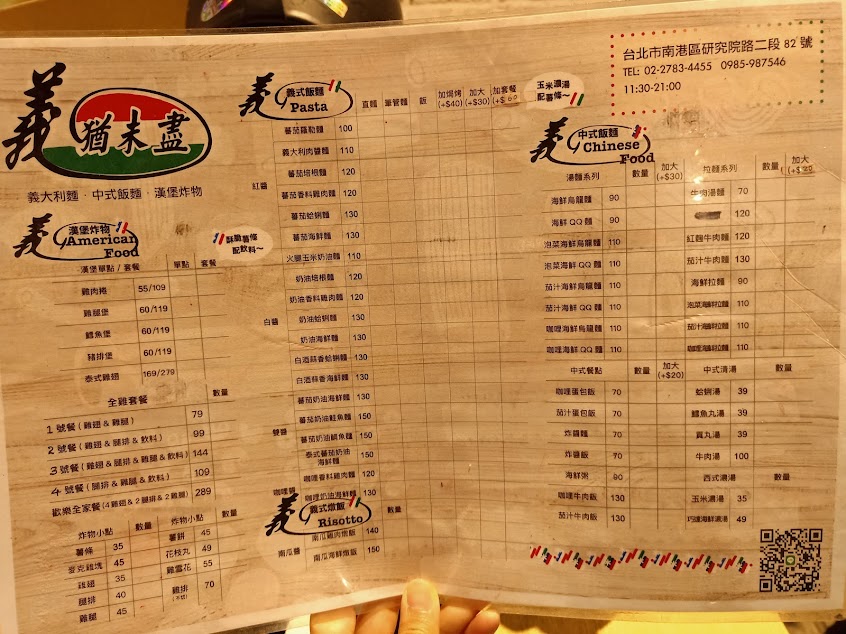 義 猶未盡
義大利麵 · 中式飯麵 · 漢堡炸物
義 漢堡炸物
American
Food
酥脆薯條
配飲料～
漢堡單點 / 套餐 單點 套餐
雞肉捲 55/109
雞腿堡 60/119
鱈魚堡 60/119
豬排堡 60/119
泰式雞翅 169/279
全雞套餐 數量
1 號餐 (雞翅 & 雞腿) 79
2 號餐 (雞翅 & 腿排 & 飲料) 99
3 號餐 (雞翅 & 腿排 & 雞腿 & 飲料) 144
4 號餐 (腿排 & 雞腿 & 飲料) 109
歡樂全家餐 (4雞翅 & 2腿排 & 2雞腿) 289
炸物小點 數量 炸物小點 數量
薯條 35 薯餅 45
麥克雞塊 45 花枝丸 49
雞翅 35 雞雪花 55
腿排 40 雞排 70
雞腿 45
義 義式飯麵
Pasta
直麵 筆管麵 飯 加焗烤 (+$40) 加大 (+$30) 加套餐
玉米濃湯
配薯條～
紅醬
蕃茄羅勒麵 100
義大利肉醬麵 110
蕃茄培根麵 120
蕃茄香料雞肉麵 120
蕃茄蛤蜊麵 130
蕃茄海鮮麵 130
白醬
火腿玉米奶油麵 110
奶油培根麵 120
奶油香料雞肉麵 120
奶油蛤蜊麵 130
奶油海鮮麵 130
白酒蒜香蛤蜊麵 130
白酒蒜香海鮮麵 130
雙醬
蕃茄奶油海鮮麵 130
蕃茄奶油鮭魚麵 150
蕃茄奶油鯛魚麵 150
泰式蕃茄奶油
海鮮麵 150
咖哩醬
咖哩香料雞肉麵 120
咖哩奶油海鮮麵 130
義 義式燉飯
Risotto
數量
南瓜醬
南瓜雞肉燉飯 140
南瓜海鮮燉飯 150
台北市南港區研究院路二段 82 號
TEL: 02-2783-4455 0985-987546
11:30-21:00
義 中式飯麵
Chinese
Food
湯麵系列 數量 加大 (+$30) 拉麵系列 數量 加大
海鮮烏龍麵 90 牛肉湯麵 70
海鮮 QQ 麵 90 120
泡菜海鮮烏龍麵 110 紅麴牛肉麵 120
泡菜海鮮 QQ 麵 110 茄汁牛肉麵 130
茄汁海鮮烏龍麵 110 海鮮拉麵 90
茄汁海鮮 QQ 麵 110 泡菜海鮮拉麵 110
咖哩海鮮烏龍麵 110 茄汁海鮮拉麵 110
咖哩海鮮 QQ 麵 110 咖哩海鮮拉麵 110
中式餐點 數量 加大 (+$20) 中式清湯 數量
咖哩蛋包飯 70 蛤蜊湯 39
茄汁蛋包飯 70 鱈魚丸湯 39
炸醬麵 70 貢丸湯 39
炸醬飯 70 牛肉湯 100
海鮮粥 80 西式濃湯 數量
咖哩牛肉飯 130 玉米濃湯 35
茄汁牛肉飯 130 巧達海鮮濃湯 49